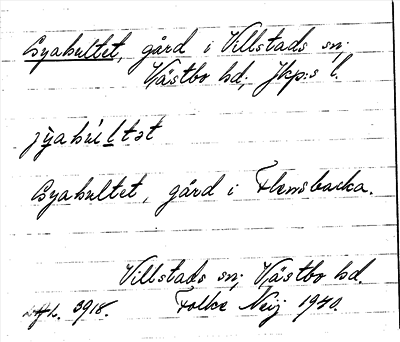 Gyahultet, gård i Villstads sn;
Västbo hd; Jkp:s l.
jỳahu̇ltət
Gyahultet, gård i Flensbacka.
Villstads sn; Västbo hd.
3918. Folke Neij 1940.